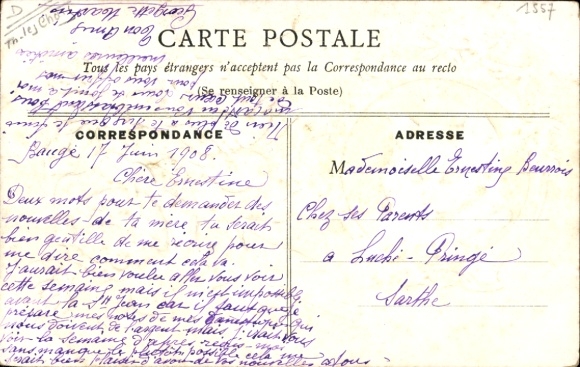 D
1557
CARTE POSTALE
Tous les pays étrangers n'acceptent pas la Correspondance au recto
(Se renseigner à la Poste)
CORRESPONDANCE
Baugé 17 Juin 1908.
Chère Ernestine
Deux mots pour te demander des
nouvelles de ta mère tu serait
bien gentille de me écrire pour
me dire comment cela va.
J'aurait bien voulu aller vous voir
cette semaine mais il m'est impossible
avant la St Jean car il faut que je
prépare mes notes de mes qui
nous doivent de l'argent mais j'irait vous
voir la semaine d'après
sans manque le plutôt possible cela me
serait bien plaisir d'avoir de vos nouvelles a tous
Rien de plus a te dire que je finis
ADRESSE
Mademoiselle Ernestine
Chez ses Parents
a Luché-Pringé
Sarthe